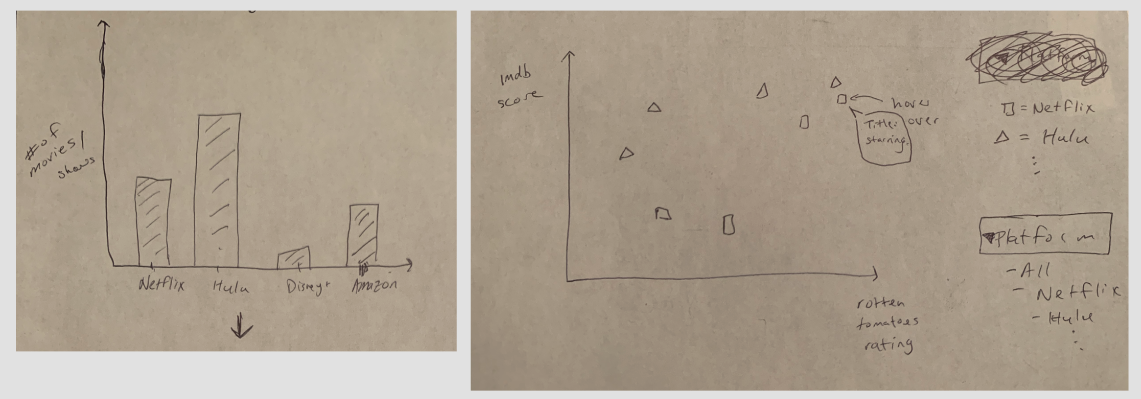 # of
movies/
shows
Netflix
Hulu
Disney+
Amazon
imdb
score
hover
over
Title:
starring:
rotten
tomatoes
rating
Platform
= Netflix
= Hulu
Platform
- All
- Netflix
- Hulu